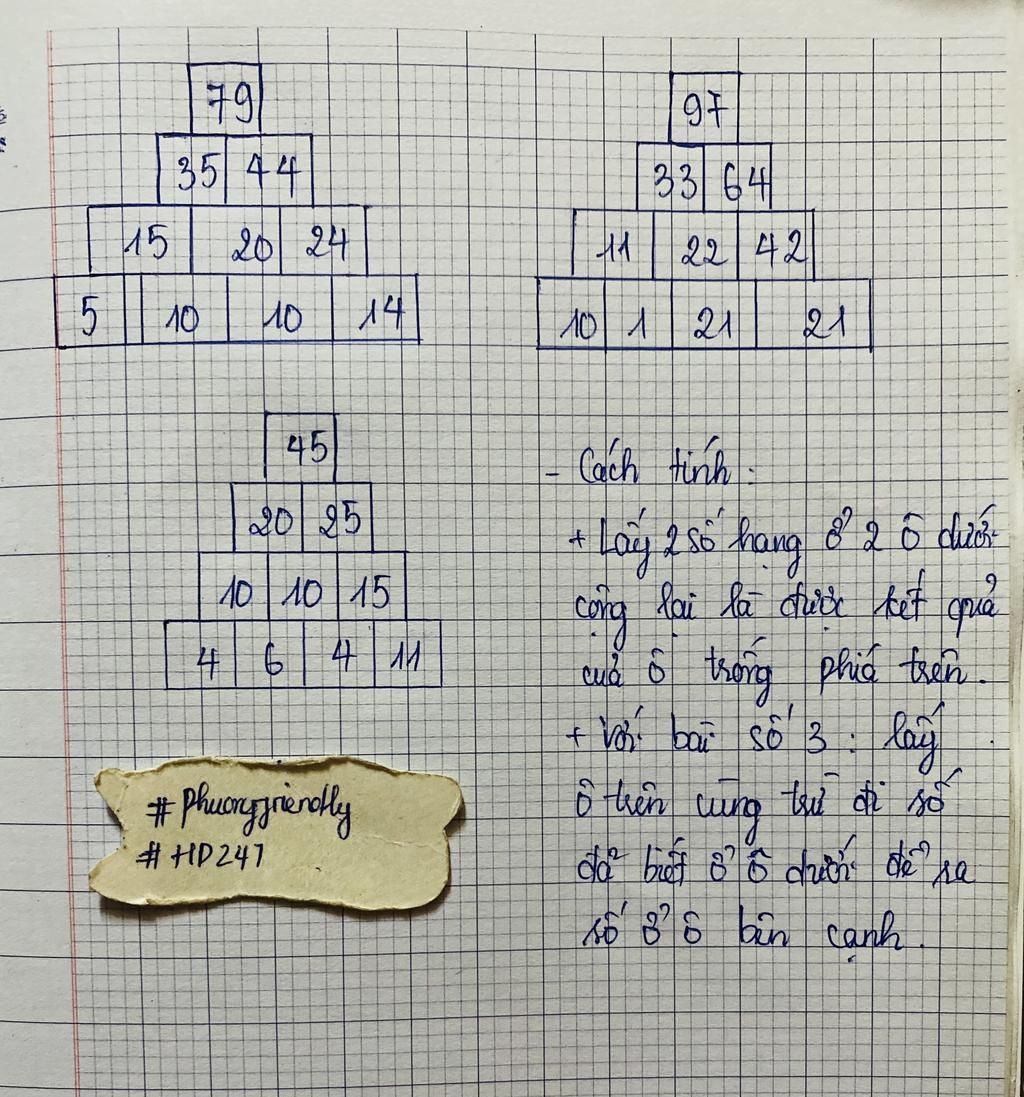 79
35 44
15 20 24
5 10 10 14
97
33 64
11 22 42
10 1 21 21
45
20 25
10 10 15
4 6 4 11
- Cách tính:
+ Lấy 2 số hạng ở 2 ô dưới
cộng lại là được kết quả
của ô trống phía trên.
+ Với bài số 3: lấy
ô trên cùng trừ đi số
đã biết ở ô dưới để ra
số ở ô bên cạnh.
# Phuongfriendly
# HD247